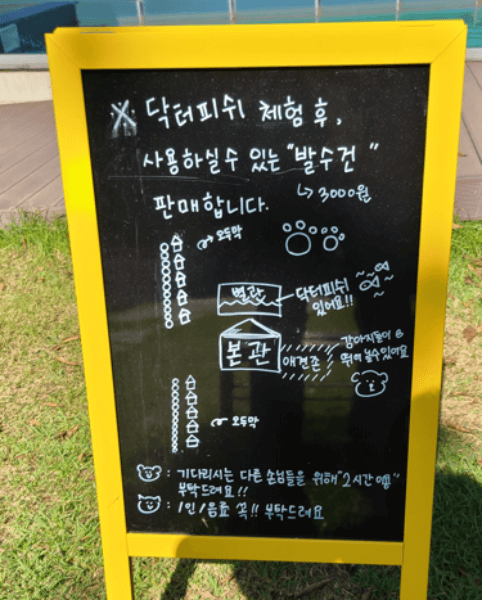 ※ 닥터피쉬 체험 후,
사용하실수 있는 "발수건"
↳ 3000원
판매합니다.
오두막
별관
닥터피쉬
있어요!!
본관
애견존
강아지들이
뛰어 놀수있어요
오두막
: 기다리시는 다른 손님들을 위해 "2시간
부탁드려요!!
: 1인 1음료 꼭!! 부탁드려요